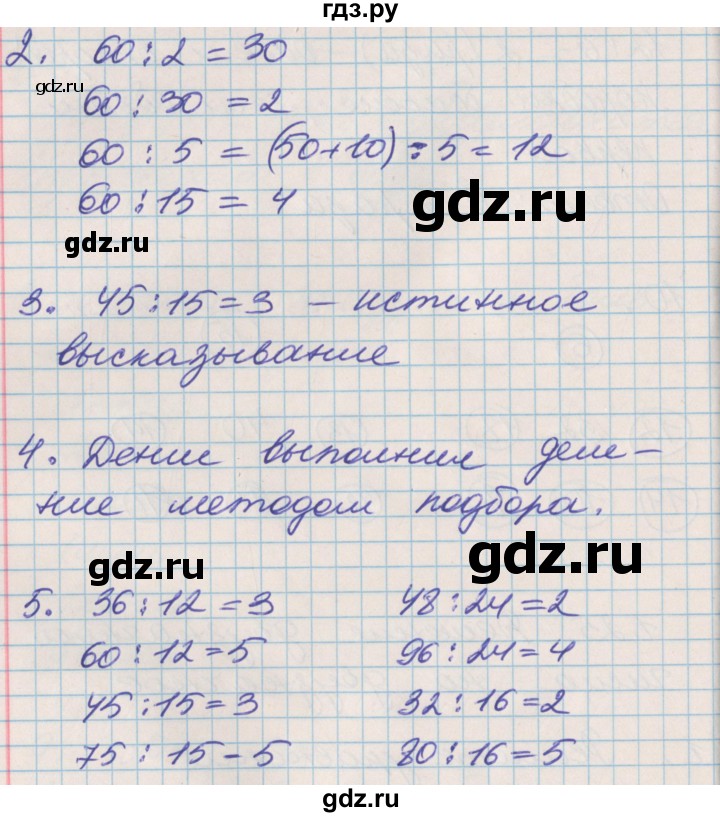 гдз.ру
2. 60 : 2 = 30
gdz.ru
60 : 30 = 2
60 : 5 = (50+10) : 5 = 12
60 : 15 = 4
gdz.ru
gdz.ru
3. 45 : 15 = 3 – истинное
высказывание
4. Денис выполнил деле–
ние методом подбора.
gdz.ru
gdz.ru
5. 36 : 12 = 3 48 : 24 = 2
60 : 12 = 5 96 : 24 = 4
45 : 15 = 3 32 : 16 = 2
75 : 15 – 5 80 : 16 = 5
gdz.ru